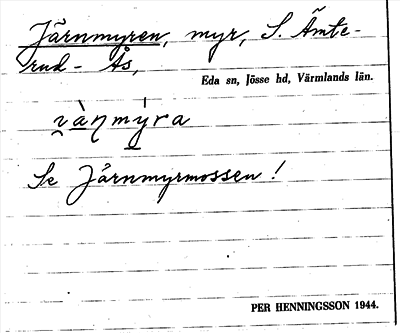 Järnmyren, myr, S. Åmte-
rud - Ås,
Eda sn, Jösse hd, Värmlands län.
Se Järnmyrmossen!
PER HENNINGSSON 1944.